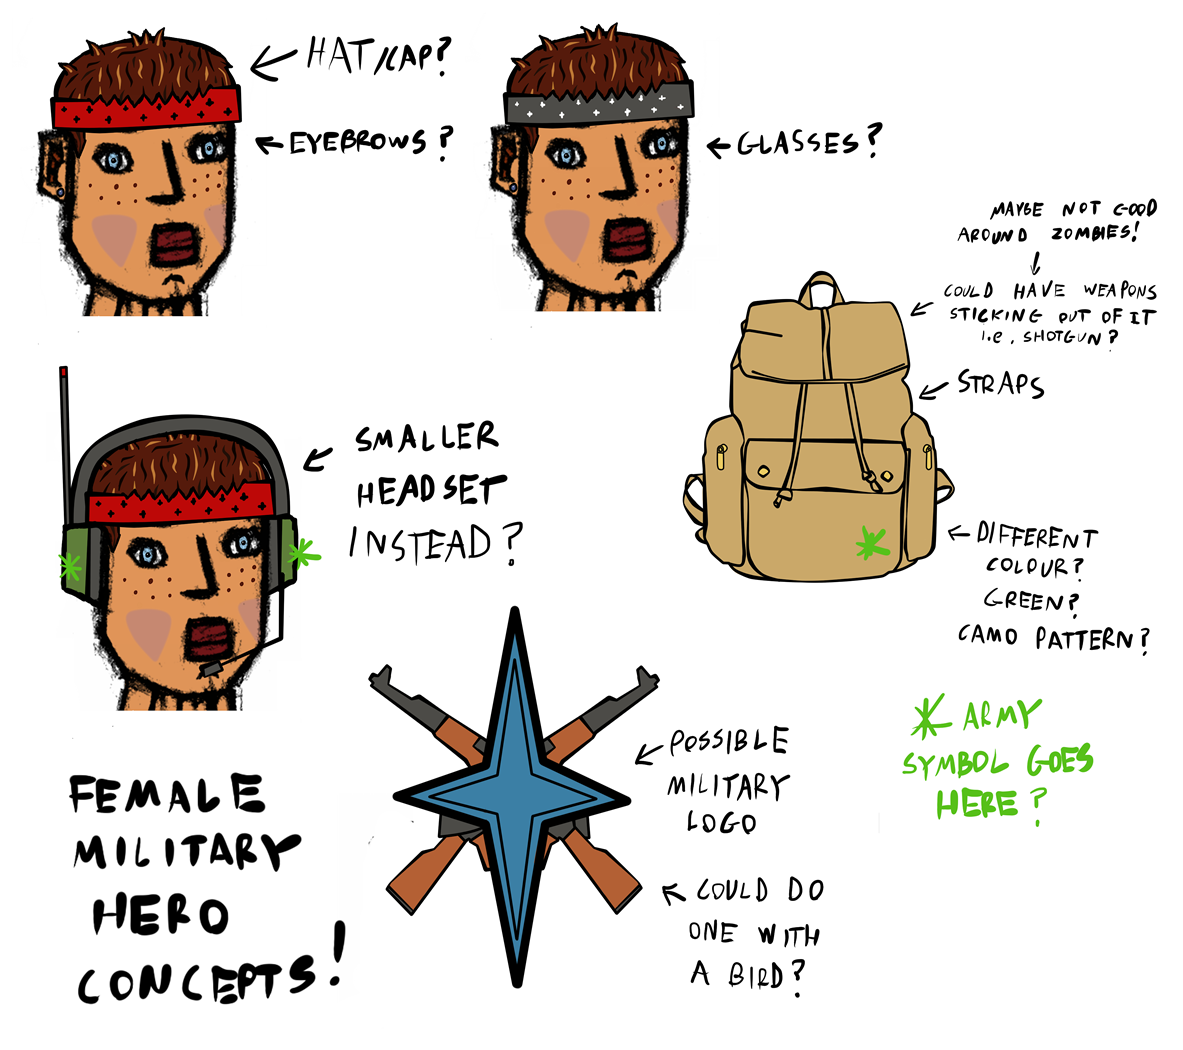 HAT/CAP?
EYEBROWS?
GLASSES?
MAYBE NOT GOOD
AROUND ZOMBIES!
COULD HAVE WEAPONS
STICKING OUT OF IT
i.e, SHOTGUN?
STRAPS
SMALLER
HEADSET
INSTEAD?
DIFFERENT
COLOUR?
GREEN?
CAMO PATTERN?
ARMY
SYMBOL GOES
HERE?
POSSIBLE
MILITARY
LOGO
COULD DO
ONE WITH
A BIRD?
FEMALE
MILITARY
HERO
CONCEPTS!